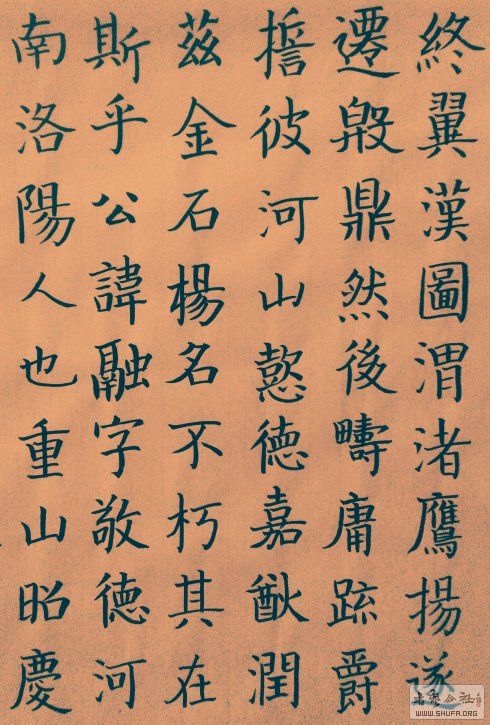 終翼漢圖渭渚鷹揚遂
遷殷鼎然後疇庸疏爵
誓彼河山懿德嘉猷潤
茲金石楊名不朽其在
斯乎公諱融字敬德河
南洛陽人也重山昭慶
WWW.SHUFA.ORG